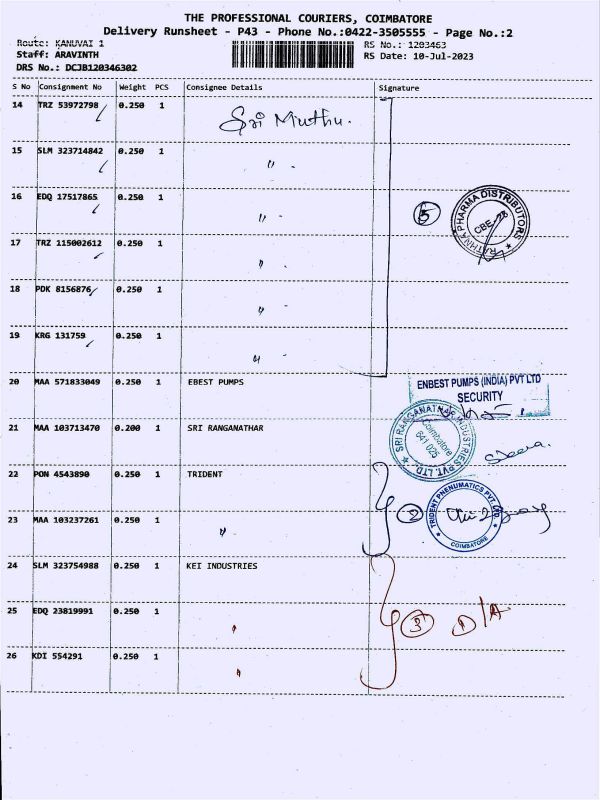 THE PROFESSIONAL COURIERS, COIMBATORE
Delivery Runsheet - P43 - Phone No.:0422-3505555 - Page No.:2
Route: KANUVAI 1
RS No.: 1203463
Staff: ARAVINTH
RS Date: 10-Jul-2023
DRS No.: DCJB120346302
S No Consignment No Weight PCS Consignee Details Signature
14 TRZ 53972798 0.250 1 Sri Muthu.
15 SLM 323714842 0.250 1 "
16 EDQ 17517865 0.250 1 "
5
RATHNA PHARMA DISTRIBUTORS
CBE-25
17 TRZ 115002612 0.250 1 "
18 PDK 8156876 0.250 1 "
19 KRG 131759 0.250 1 "
20 MAA 571833049 0.250 1 EBEST PUMPS
ENBEST PUMPS (INDIA) PVT LTD
SECURITY
21 MAA 103713470 0.200 1 SRI RANGANATHAR
SRI RANGANATHAR INDUSTRIES PVT. LTD.
Coimbatore
641 025
22 PON 4543890 0.250 1 TRIDENT
2
TRIDENT PNEUMATICS PVT. LTD
COIMBATORE
23 MAA 103237261 0.250 1 "
24 SLM 323754988 0.250 1 KEI INDUSTRIES
25 EDQ 23819991 0.250 1 "
3 D/A
26 KDI 554291 0.250 1 "